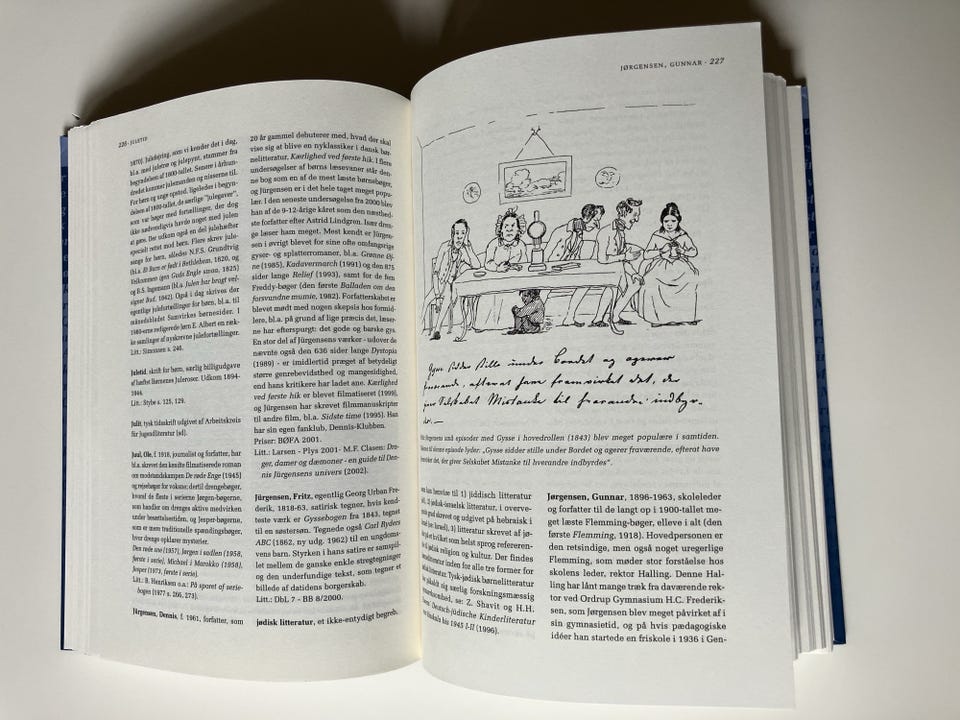 226 · JULETID
1870). Julefejring, som vi kender det i dag,
bl.a. med juletræ og julepynt, stammer fra
begyndelsen af 1800-tallet. Senere i århun-
dredet kommer julemanden og nisserne til.
For børn og unge opstod, ligeledes i begyn-
delsen af 1800-tallet, de særlige "julegaver",
som var bøger med fortællinger, der dog
ikke nødvendigvis havde noget med julen
at gøre. Der udkom også en del julehæfter
specielt rettet mod børn. Flere skrev jule-
sange for børn, således N.F.S. Grundtvig
(bl.a. Et Barn er født i Bethlehem, 1820, og
Velkommen igen Guds Engle smaa, 1825)
og B.S. Ingemann (bl.a. Julen har bragt vel-
signet Bud, 1842). Også i dag skrives der
egentlige julefortællinger for børn, bl.a. til
månedsbladet Samvirkes børnesider. I
1980-erne redigerede Jørn E. Albert en ræk-
ke samlinger af nyskrevne julefortællinger.
Litt.: Simonsen s. 246.
Juletid, skrift for børn, særlig billigudgave
af hæftet Børnenes Juleroser. Udkom 1894-
1944.
Litt.: Stybe s. 125, 129.
Julit, tysk tidsskrift udgivet af Arbeitskreis
für Jugendliteratur (sd).
Juul, Ole, f. 1918, journalist og forfatter, har
bl.a. skrevet den kendte filmatiserede roman
om modstandskampen De røde Enge (1945)
og rejsebøger for voksne; dertil drengebøger,
hvoraf de fleste i serierne Jørgen-bøgerne,
som handler om drenges aktive medvirken
under besættelsestiden, og Jesper-bøgerne,
som er mere traditionelle spændingsbøger,
hvor drenge opklarer mysterier.
Den røde sne (1957), Jørgen i sadlen (1958,
første i serie), Michael i Marokko (1958),
Jesper (1973, første i serie).
Litt.: B. Henriksen o.a.: På sporet af serie-
bogen (1977 s. 266, 273).
Jürgensen, Dennis, f. 1961, forfatter, som
20 år gammel debuterer med, hvad der skal
vise sig at blive en nyklassiker i dansk bør-
nelitteratur, Kærlighed ved første hik. I flere
undersøgelser af børns læsevaner står den-
ne bog som en af de mest læste børnebøger,
og Jürgensen er i det hele taget meget popu-
lær. I den seneste undersøgelse fra 2000 blev
han af de 9-12-årige kåret som den næsthed-
ste forfatter efter Astrid Lindgren. Især dren-
ge læser ham meget. Mest kendt er Jürgen-
sen i øvrigt blevet for sine ofte omfangsrige
gyser- og splatterromaner, bl.a. Grønne Øj-
ne (1985), Kadavermarch (1991) og den 875
sider lange Relief (1993), samt for de fem
Freddy-bøger (den første Balladen om den
forsvundne mumie, 1982). Forfatterskabet er
blevet mødt med nogen skepsis hos formid-
lere, bl.a. på grund af lige præcis det, læser-
ne har efterspurgt: det gode og barske gys.
En stor del af Jürgensens værker - udover de
nævnte også den 636 sider lange Dystopia
(1989) - er imidlertid præget af betydeligt
større genrebevidsthed og mangesidighed,
end hans kritikere har ladet ane. Kærlighed
ved første hik er blevet filmatiseret (1999),
og Jürgensen har skrevet filmmanuskripter
til andre film, bl.a. Sidste time (1995). Han
har sin egen fanklub, Dennis-Klubben.
Priser: BØFA 2001.
Litt.: Larsen - Plys 2001- M.F. Clasen: Dro-
ger, damer og dæmoner - en guide til Den-
nis Jürgensens univers (2002).
Jürgensen, Fritz, egentlig Georg Urban Fre-
derik, 1818-63, satirisk tegner, hvis kend-
teste værk er Gyssebogen fra 1843, tegnet
til en søstersøn. Tegnede også Carl Ryders
ABC (1862, ny udg. 1962) til en ungdoms-
vens barn. Styrken i hans satire er samspil-
let mellem de ganske enkle stregtegninger
og den underfundige tekst, som tegner et
billede af datidens borgerskab.
Litt.: DbL 7 - BB 8/2000.
jødisk litteratur, et ikke-entydigt begreb,
JØRGENSEN, GUNNAR · 227
Gysse sidder stille under Bordet og agerer
fraværende, efterat have fremvirket det, der
giver Selskabet Mistanke til hverandre indbyr-
des.—
Jürgensens små episoder med Gysse i hovedrollen (1843) blev meget populære i samtiden.
til denne episode lyder: „Gysse sidder stille under Bordet og agerer fraværende, efterat have
det, der giver Selskabet Mistanke til hverandre indbyrdes".
kan henvise til 1) jiddisch litteratur
2) jødisk-israelsk litteratur, i overve-
grad skrevet og udgivet på hebraisk i
(se Israel), 3) litteratur skrevet af jø-
hvilket som helst sprog refereren-
jødisk religion og kultur. Der findes
litteratur inden for alle tre former for
litteratur. Tysk-jødisk børnelitteratur
særlig forskningsmæssig
se: Z. Shavit og H.H.
Deutsch-jüdische Kinderliteratur
bis 1945 I-II (1996).
Jørgensen, Gunnar, 1896-1963, skoleleder
og forfatter til de langt op i 1900-tallet me-
get læste Flemming-bøger, elleve i alt (den
første Flemming, 1918). Hovedpersonen er
den retsindige, men også noget uregerlige
Flemming, som møder stor forståelse hos
skolens leder, rektor Halling. Denne Hal-
ling har lånt mange træk fra daværende rek-
tor ved Ordrup Gymnasium H.C. Frederik-
sen, som Jørgensen blev meget påvirket af i
sin gymnasietid, og på hvis pædagogiske
idéer han startede en friskole i 1936 i Gen-